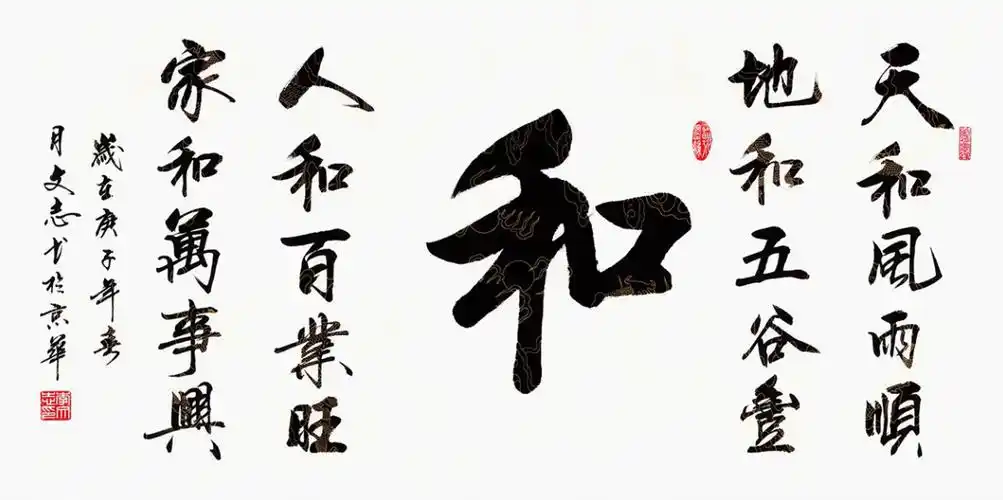 天和風雨順
地和五谷豐
和
人和百業旺
家和萬事興
歲在庚子年春
月文志書於京華